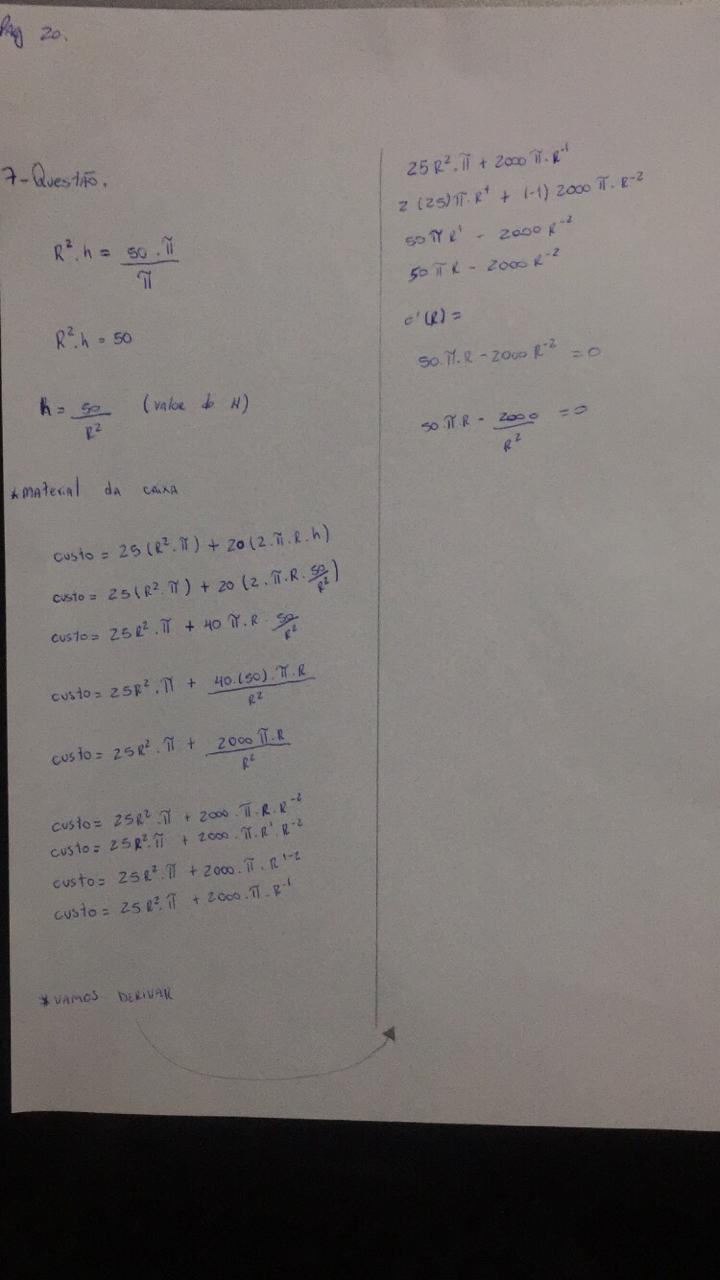 Pág 20.
7-Questão.
R².h = 50.π/π
R².h = 50
h = 50/R² (valor do H)
*Material da caixa
custo = 25(R².π) + 20(2.π.R.h)
custo = 25(R².π) + 20(2.π.R.50/R²)
custo = 25R².π + 40π.R.50/R²
custo = 25R².π + 40.(50).π.R/R²
custo = 25R².π + 2000π.R/R²
custo = 25R².π + 2000.π.R.R⁻²
custo = 25R².π + 2000.π.R¹.R⁻²
custo = 25R².π + 2000.π.R¹⁻²
custo = 25R².π + 2000.π.R⁻¹
*VAMOS DERIVAR
25R².π + 2000π.R⁻¹
2(25)π.R¹ + (-1)2000π.R⁻²
50πR¹ - 2000R⁻²
50πR - 2000R⁻²
c'(R) =
50.π.R - 2000R⁻² = 0
50.π.R - 2000/R² = 0